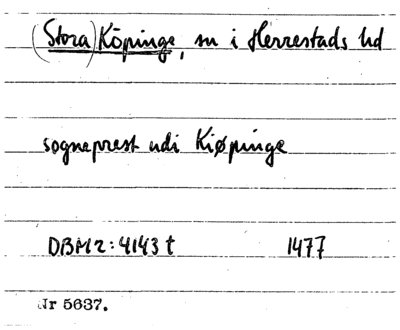 (Stora) Köpinge, sn i Herrestads hd
sogneprest udi Kiøpinge
DBM 2:4143 t 1477
Nr 5637.